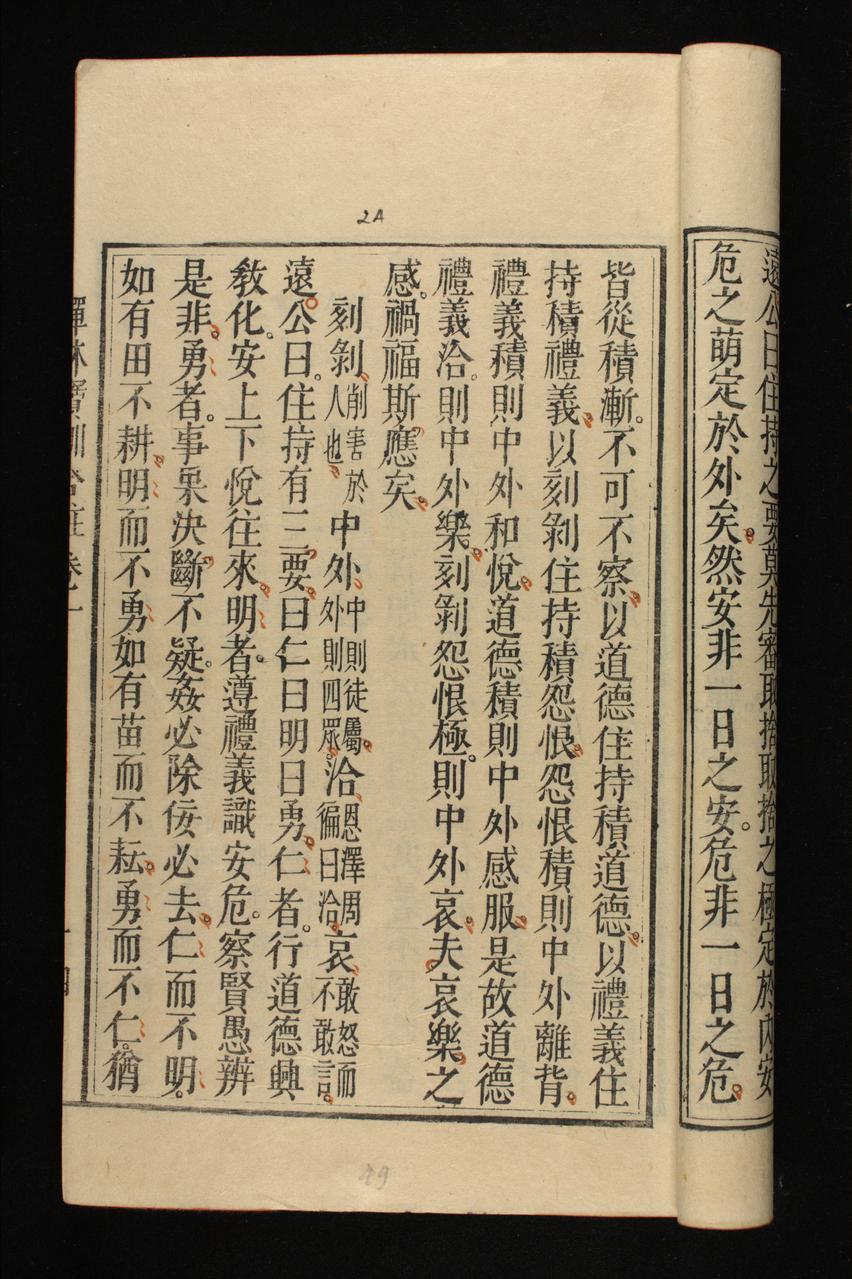 遠公曰住持之要莫先審取捨取捨之極定於內安
危之萌定於外矣然安非一日之安。危非一日之危
2A
皆從積漸。不可不察以道德住持積道德。以禮義住
持積禮義以刻剝住持積怨恨怨恨積則中外離背。
禮義積則中外和悅道德積則中外感服是故道德
禮義洽。則中外樂刻剝怨恨極。則中外哀夫哀樂之
感。禍福斯應矣
刻剝削害於人也中外中則徒屬外則四眾。洽恩澤周徧曰洽哀敢怒而不敢言。
遠公曰。住持有三要。曰仁曰明曰勇仁者。行道德興
教化。安上下悅往來明者。遵禮義識安危。察賢愚辨
是非勇者。事果決斷不疑。姦必除佞必去仁而不明。
如有田不耕明而不勇如有苗而不耘勇而不仁。猶
禪林寶訓合註 卷一
49